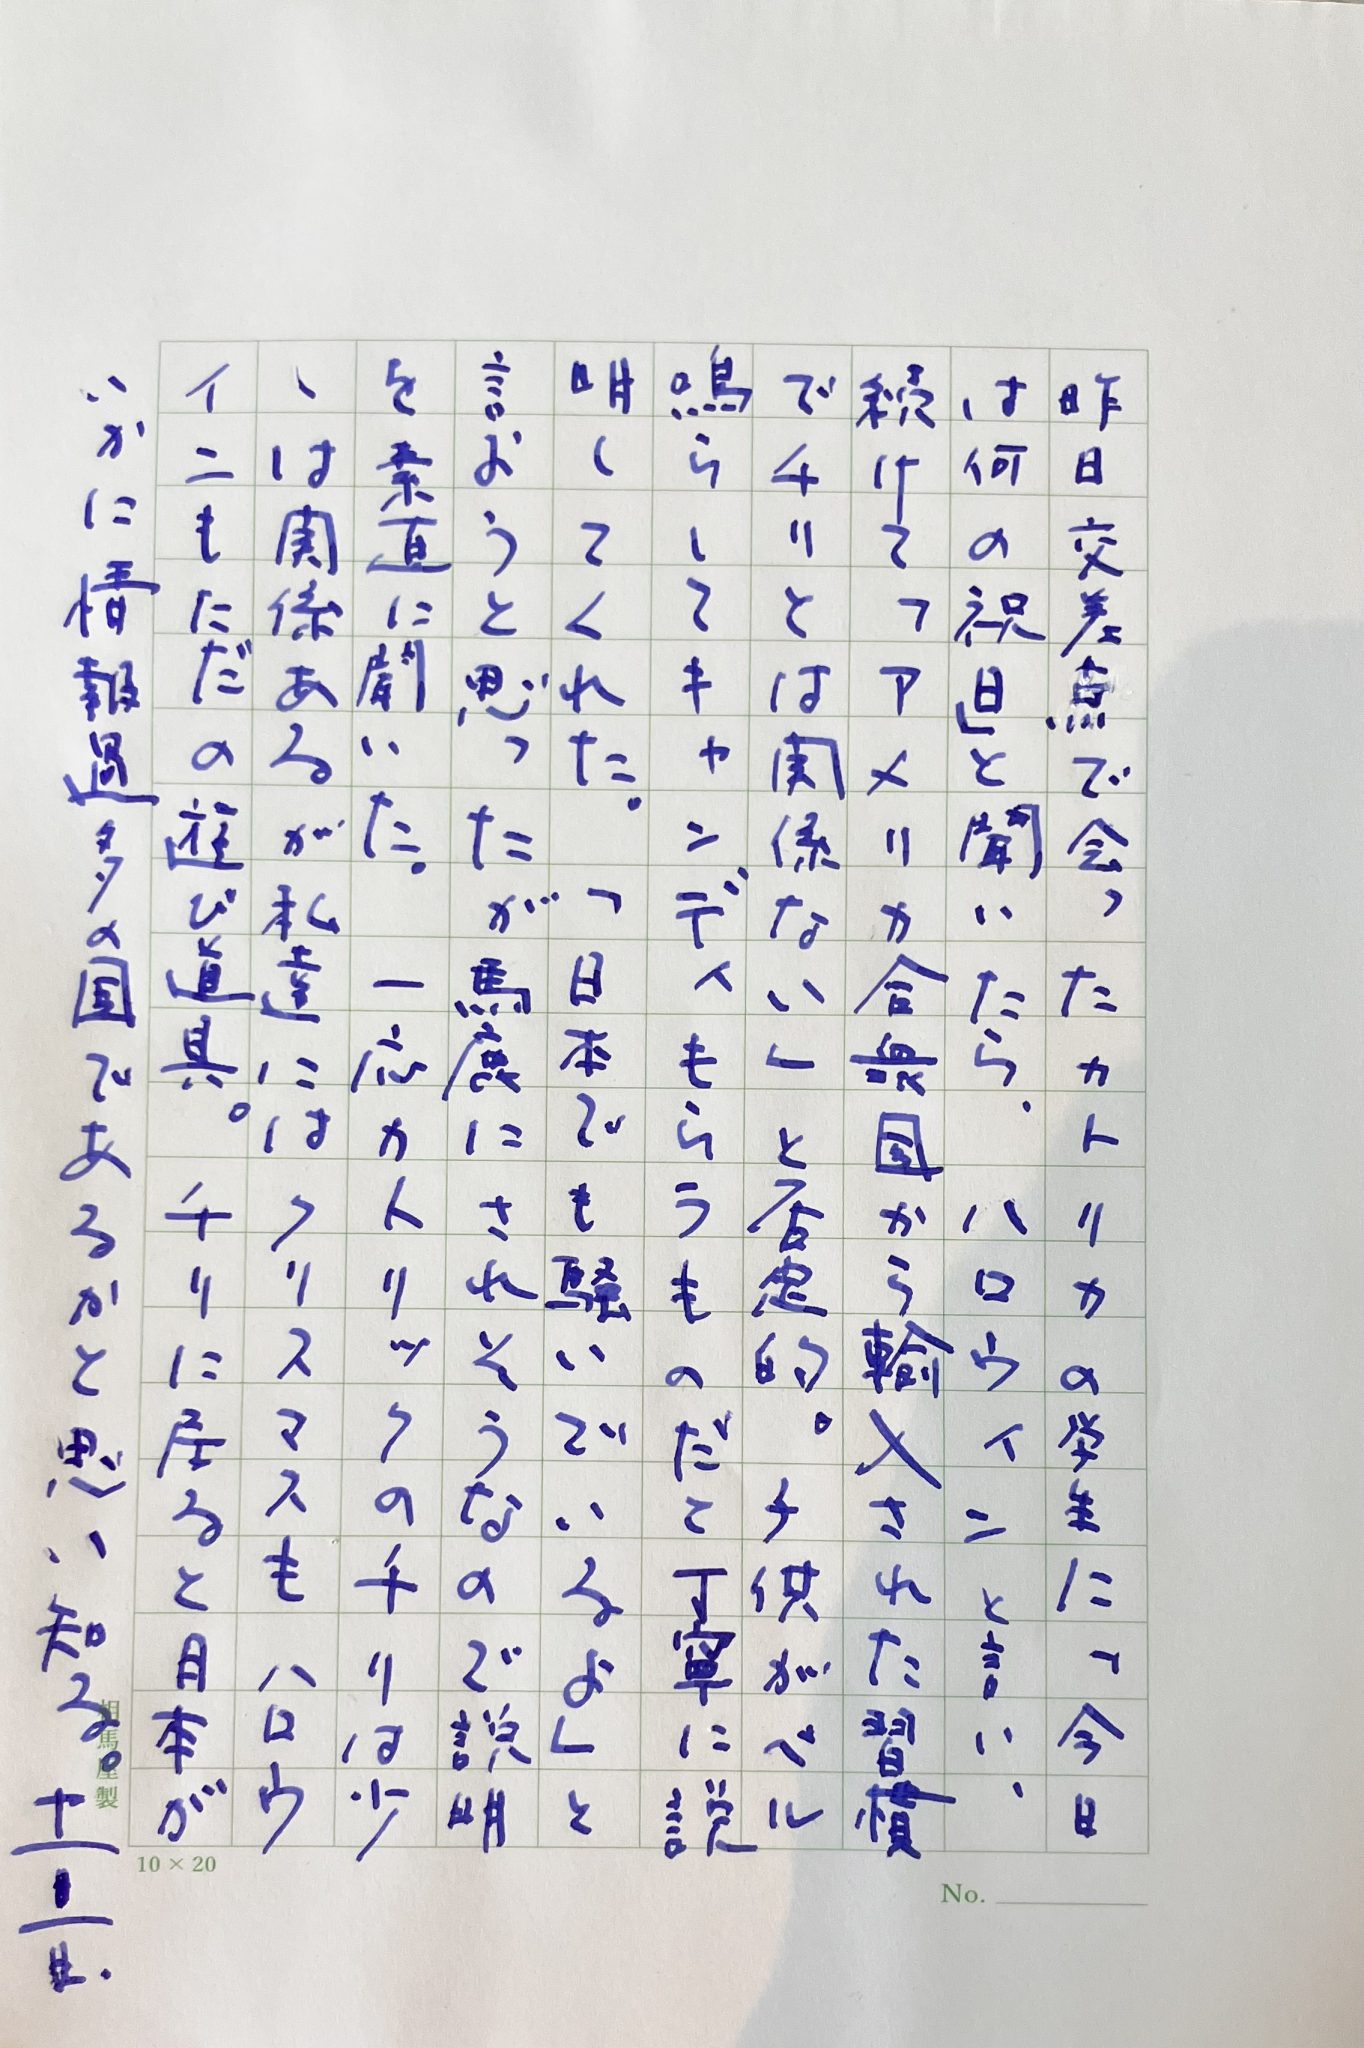 昨日交差点で会ったカトリカの学生に「今日
は何の祝日」と聞いたら、ハロウィンと言い、
続けて「アメリカ合衆国から輸入された習慣
でチリとは関係ない」と否定的。子供がベル
鳴らしてキャンディもらうものだと丁寧に説
明してくれた。「日本でも騒いでいるよ」と
言おうと思ったが馬鹿にされそうなので説明
を素直に聞いた。一応カトリックのチリは少
しは関係あるが私達にはクリスマスもハロウ
イニもただの遊び道具。チリに居ると日本が
いかに情報過多の国であるかと思い知る。十一
月一日.
No.
10×20
相馬屋製